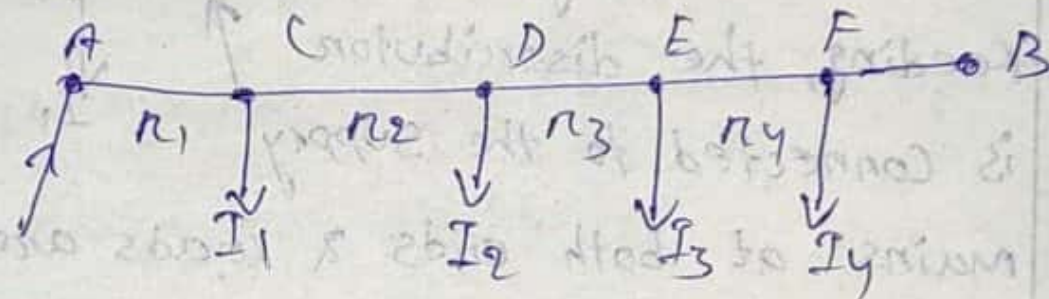 A C D E F B
r1 r2 r3 r4
I1 I2 I3 I4